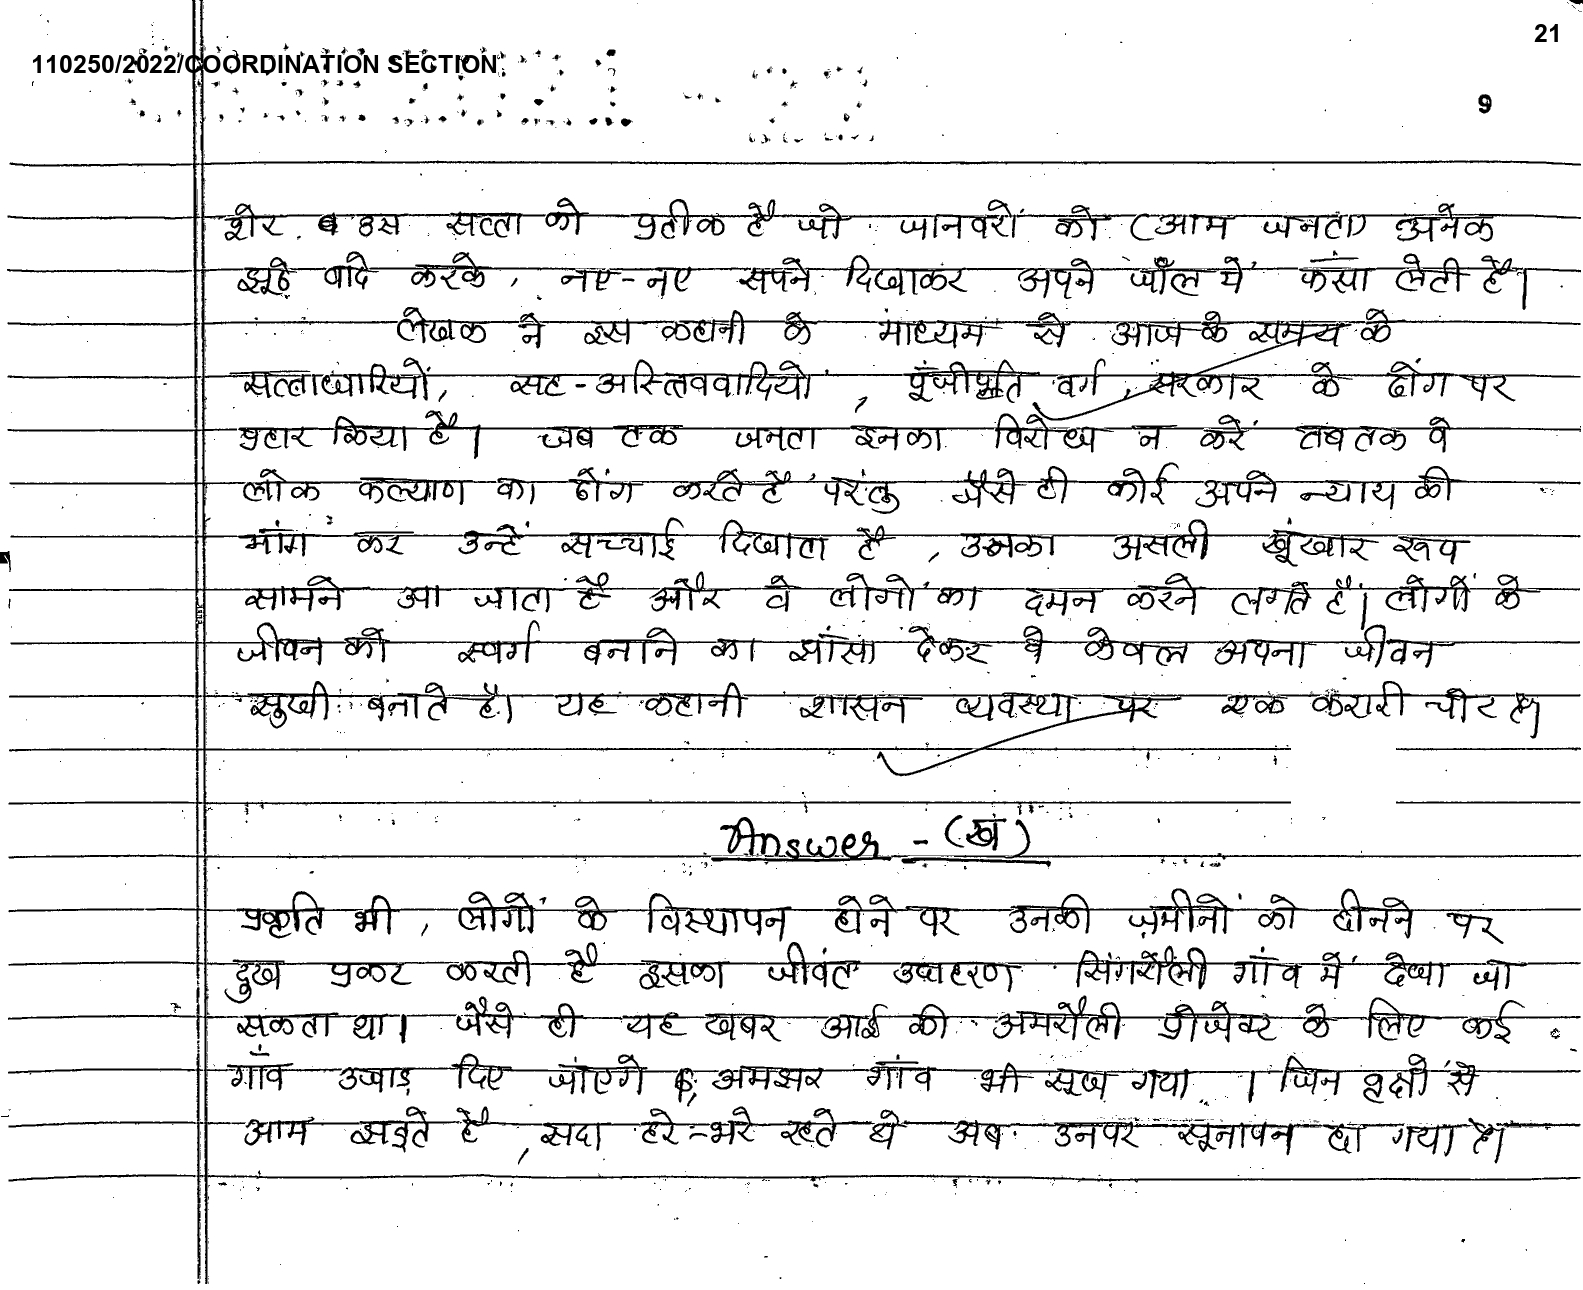 21
110250/2022/COORDINATION SECTION
9
शेर उस सत्ता को प्रतीक है जो जानवरों को (आम जनता) अनेक
झूठे वादे करके, नए-नए सपने दिखाकर अपने जाँल में फंसा लेती है।
लेखक ने इस कहानी के माध्यम से आज के समय के
सत्ताधारियों, सह-अस्तित्ववादियों, पूंजीपति वर्ग, सरकार के ढोंग पर
प्रहार किया है। जब तक जनता इनका विरोध न करें तब तक वे
लोक कल्याण का ढोंग करते हैं परंतु जैसे ही कोई अपने न्याय की
मांग कर उन्हें सच्चाई दिखाता है, उनका असली खूंखार रूप
सामने आ जाता है और वे लोगों का दमन करने लगते हैं। लोगों के
जीवन को स्वर्ग बनाने का झांसा देकर वे केवल अपना जीवन
सुखी बनाते है। यह कहानी शासन व्यवस्था पर एक करारी चोट है।
Answer - (ख)
प्रकृति भी, लोगों के विस्थापन होने पर उनकी ज़मीनों को छीनने पर
दुख प्रकट करती है इसका जीवंत उदाहरण सिंगरौली गांव में देखा जा
सकता था। जैसे ही यह खबर आई की अमरौली प्रोजेक्ट के लिए कई
गाँव उजाड़ दिए जांएगे, अमझर गांव भी सूख गया। जिन वृक्षों से
आम झड़ते है, सदा हरे-भरे रहते थे अब उनपर सूनापन छा गया है।